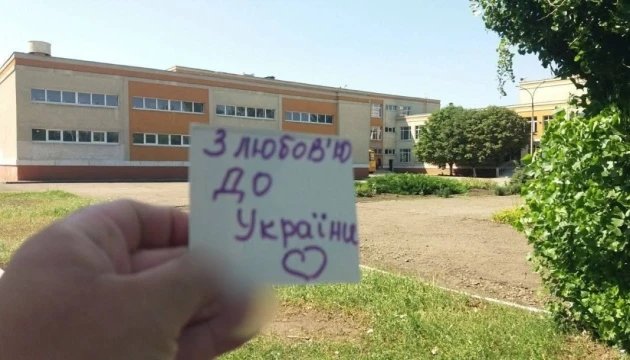 З любов'ю
До
України